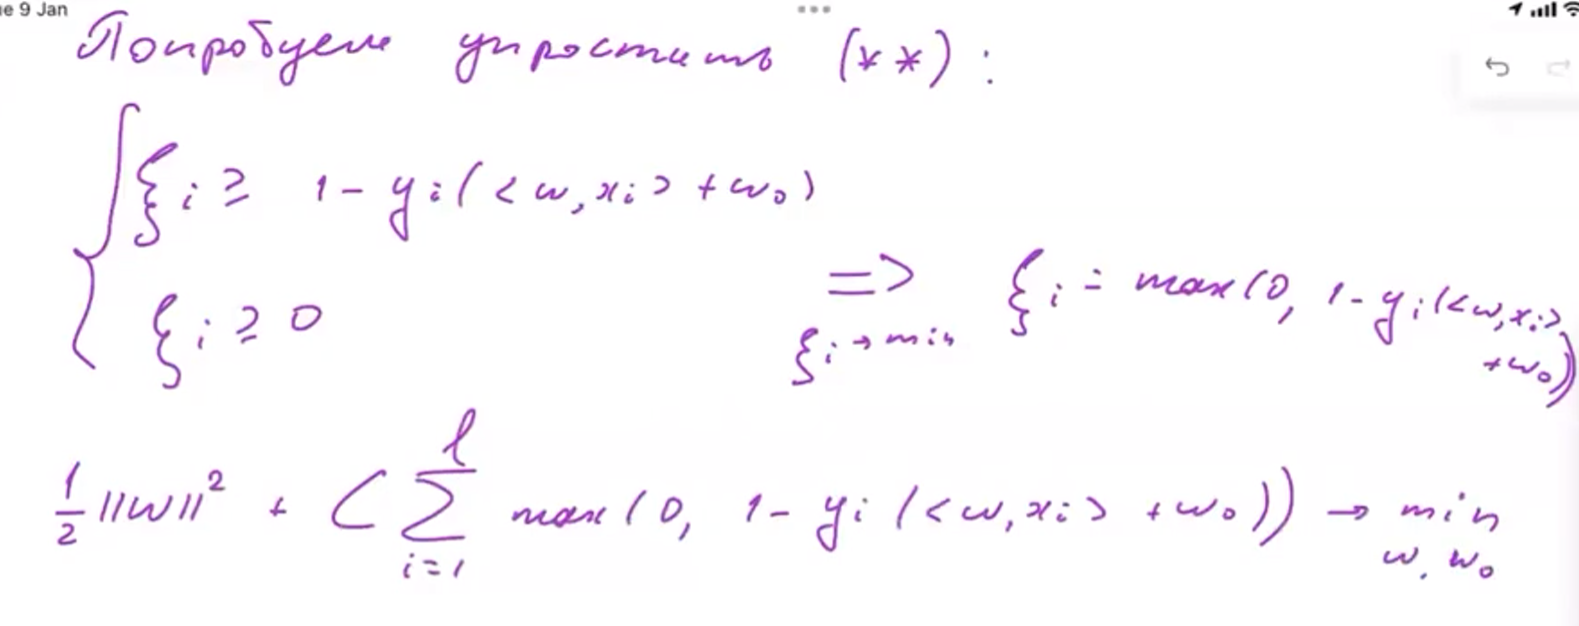 ue 9 Jan
Попробуем упростить (**):
ξi ≥ 1 - yi(<w, xi> + w₀)
ξi ≥ 0
=>
ξi → min
ξi = max(0, 1 - yi(<w, xi>
+ w₀))
½ ||w||² + C ∑ᵢ₌₁ˡ max(0, 1 - yi(<w, xi> + w₀)) → min
w, w₀